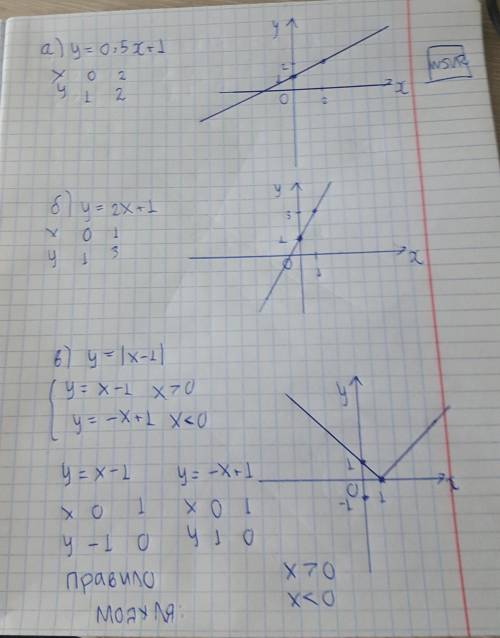 а) y = 0,5x+1
x 0 2
y 1 2
y
2
1
0
2
x
WSVR
б) y = 2x+1
x 0 1
y 1 3
y
3
1
0
1
x
в) y = |x-1|
y = x-1 x>0
y = -x+1 x<0
y = x-1 y = -x+1
x 0 1 x 0 1
y -1 0 y 1 0
y
1
0
-1
1
x
Правило
модуля:
x>0
x<0